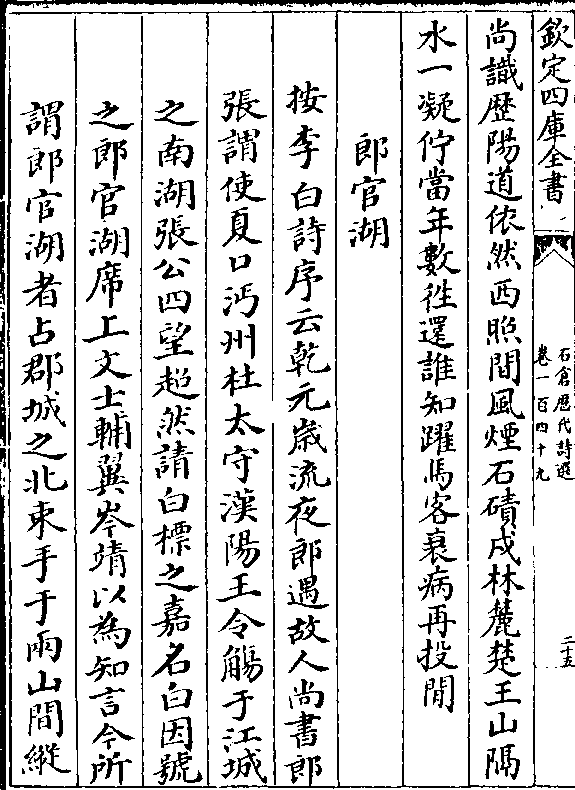 欽定四庫全書
石倉歷代詩選
卷一百四十九
二十五
尚識歷陽道依然西照間風煙石磧戍林麓楚王山隔
水一凝佇當年數徃還誰知躍馬客衰病再投閒
郎官湖
按李白詩序云乾元歲流夜郎遇故人尚書郎
張謂使夏口沔州杜太守漢陽王令觴于江城
之南湖張公四望超然請白標之嘉名白因號
之郎官湖席上文士輔翼岑靖以為知言今所
謂郎官湖者占郡城之北束手于兩山間縱